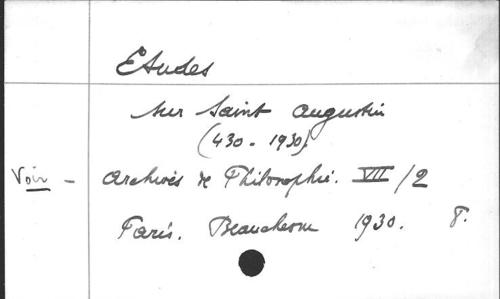 Etudes
sur Saint Augustin
(430 - 1930).
Voir - Archives de Philosophie. VII/2
Paris. Beauchesne 1930. 8.